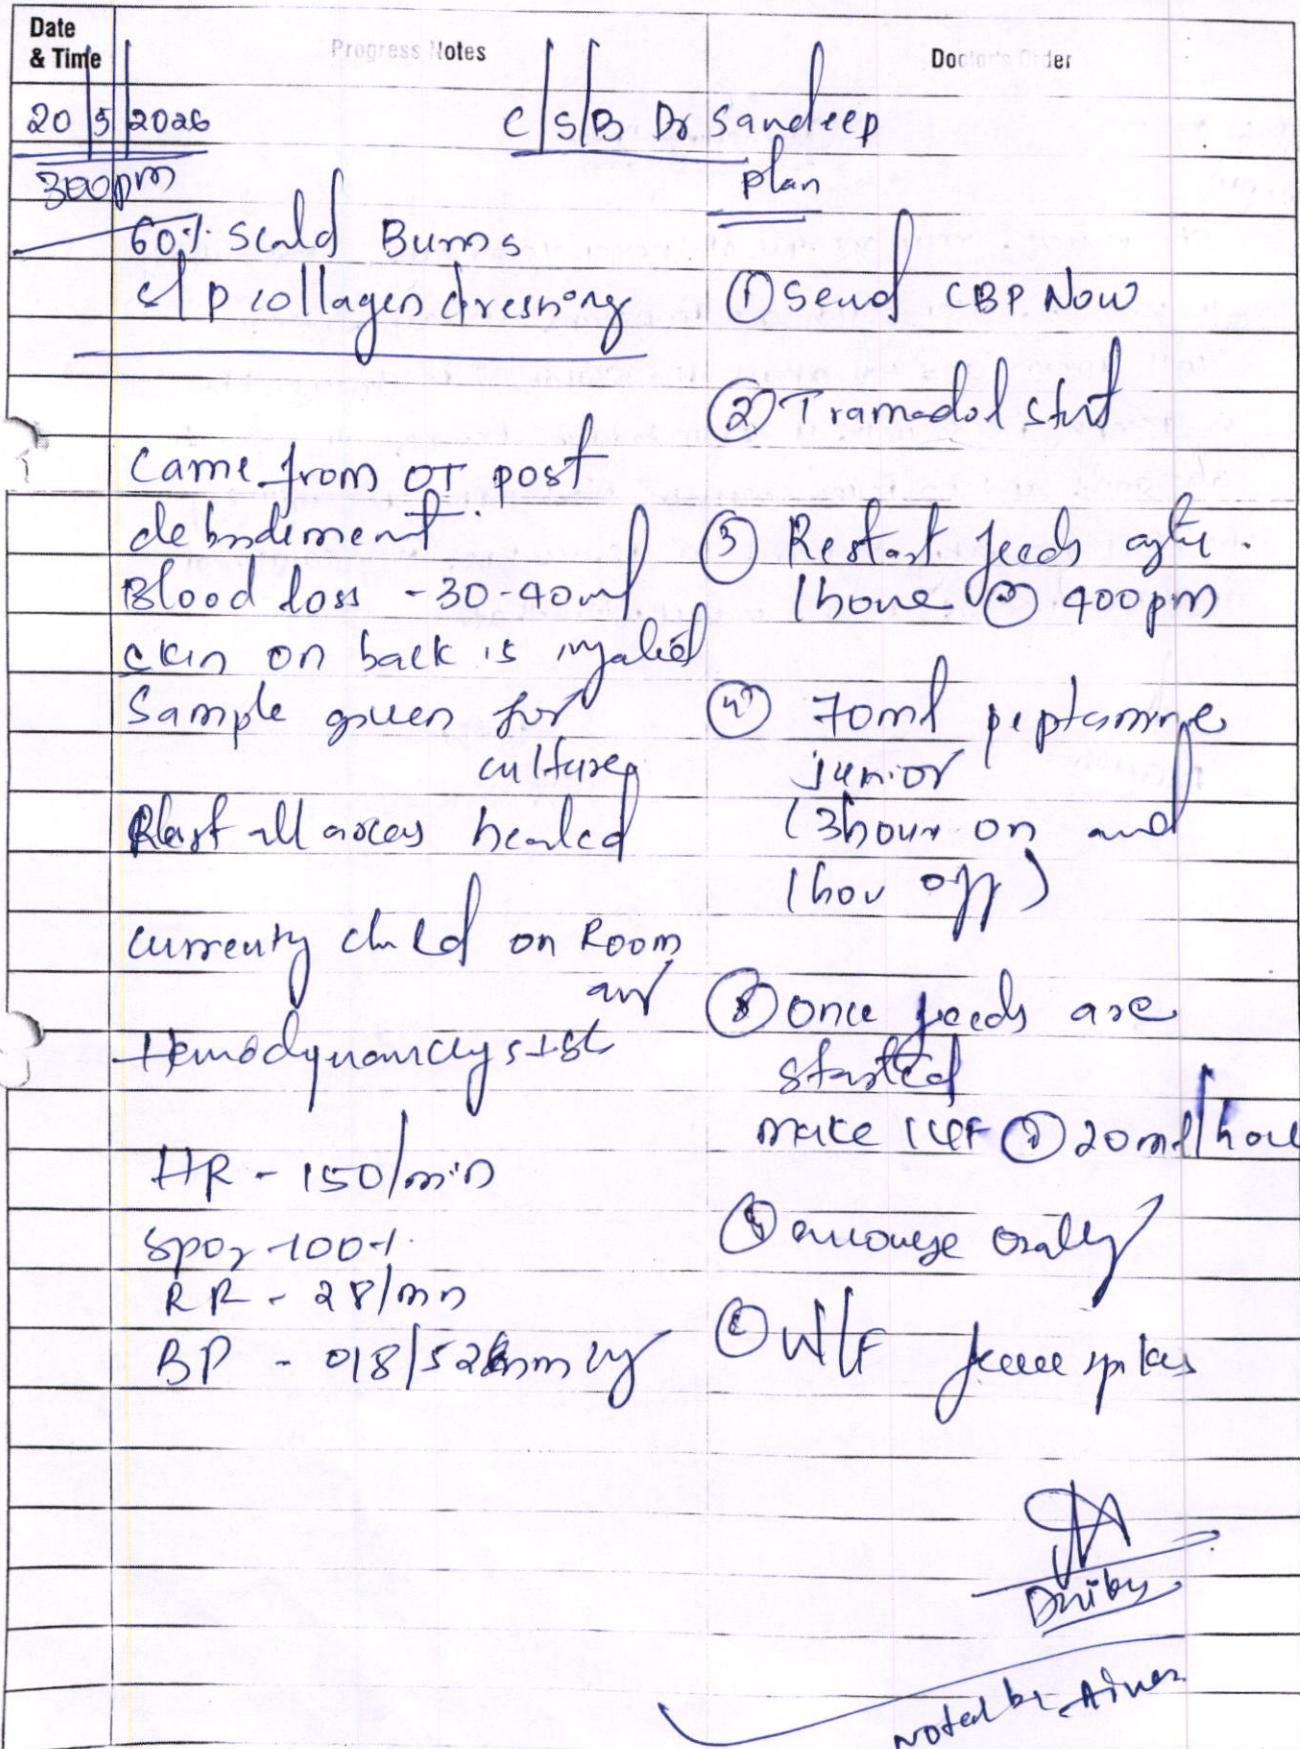 Date
& Time
Progress Notes
Doctor's Order
20/5/2026
C/S/B Dr Sandeep
300pm
60% Scald Burns
s/p collagen dressing
Came from OT post
debridement.
Blood loss - 30-40ml
skin on back is
Sample given for
culture
Rest all areas healed
currenty child on Room
air
HR - 150/min
SpO2 -100%
RR - 28/min
BP - 98/52 mmHg
plan
① Send CBP Now
② Tramadol
③ Restart feeds after
1 hour @ 400pm
④ 70ml peptamine
junior
(3hour on and
1 hou off)
⑤ once feeds are
started
make IVF @ 20ml/hou
encourage orally
W/F spikes
Noted by